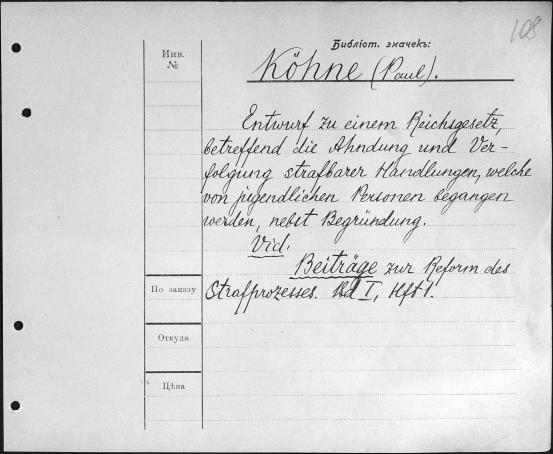 108
Библіот. значекъ:
Инв.
№
Köhne (Paul).
Entwurf zu einem Reichsgesetz,
betreffend die Ahndung und Ver-
folgung strafbarer Handlungen, welche
von jugendlichen Personen begangen
werden, nebst Begründung.
Vid.
Beiträge zur Reform des
Strafprozesses. Bd I, Hft 1.
По заказу
Откуда
Цѣна